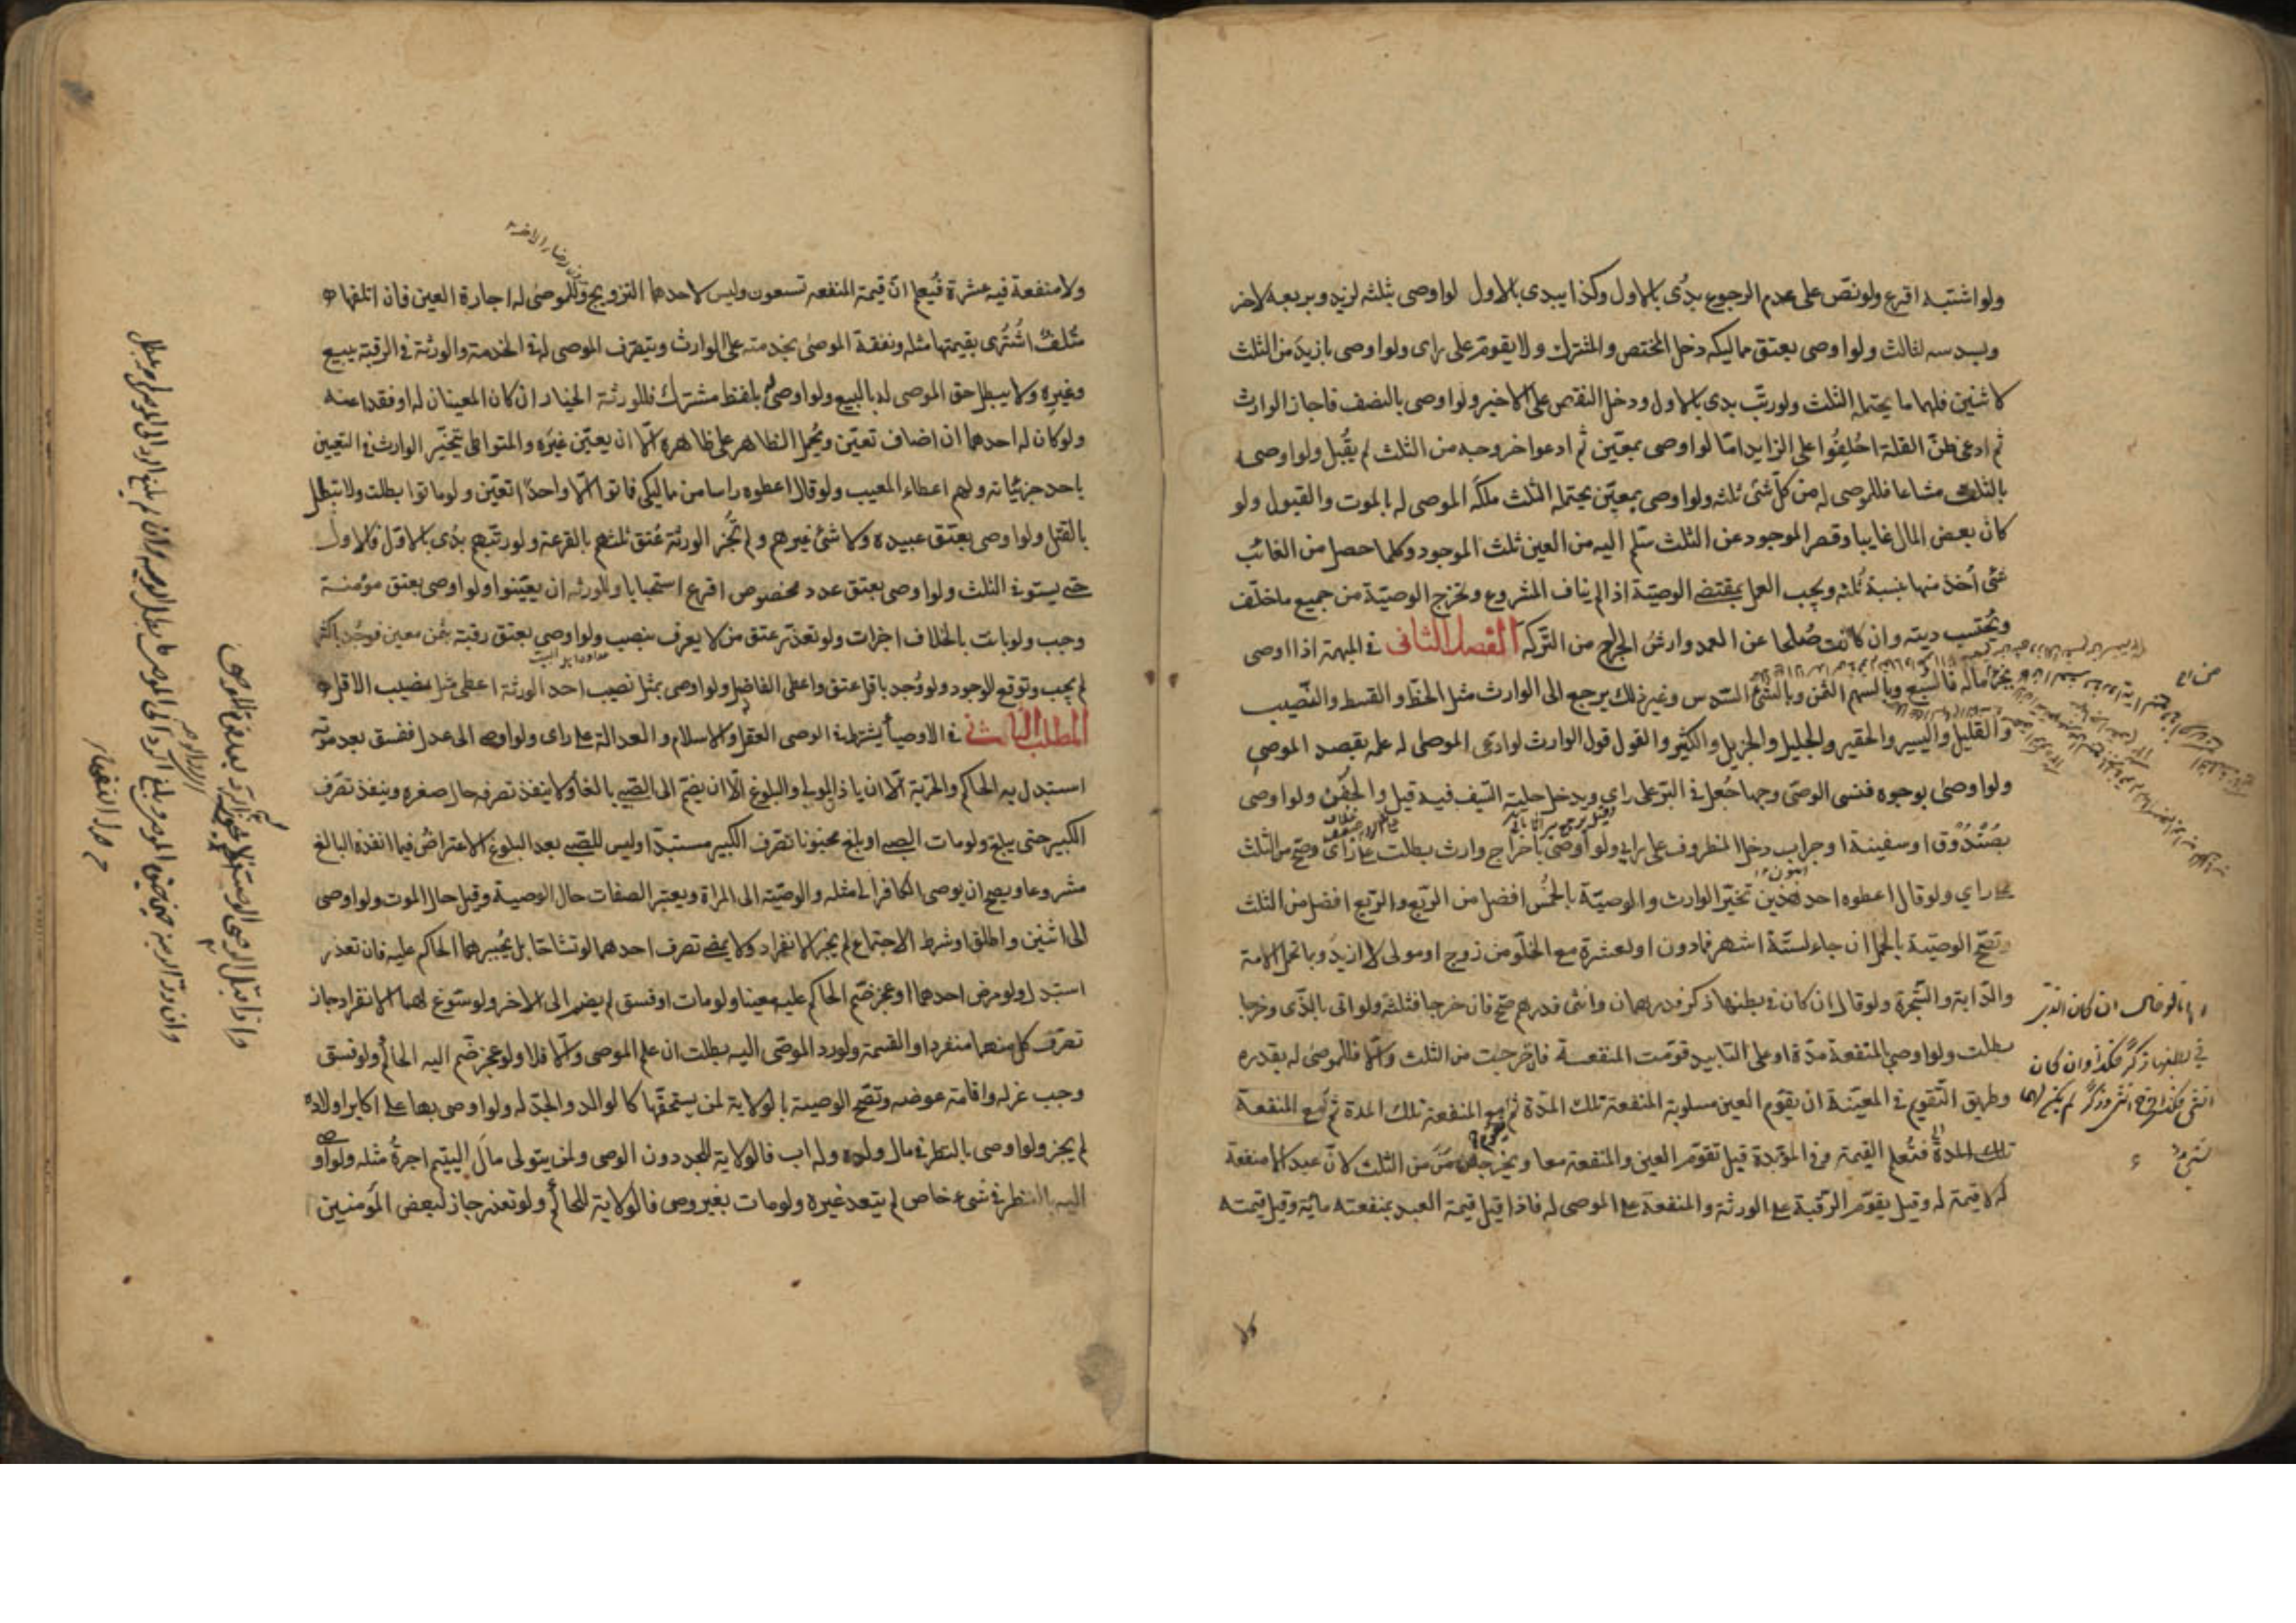 ولو اشتبه اقرع ولو نص على عدم الرجوع بدى بالاول وكذا يبدى بالاول لو اوصى بثلثه لزيد وبربعه لاخر
وبسدسه لثالث ولو اوصى بعتق مماليكه دخل المختص والمشترك ولا يقوم على راى ولو اوصى بازيد من الثلث
لاثنين فلهما ما يحتمله الثلث ولو رتب بدى بالاول ودخل النقص على الاخير ولو اوصى بالنصف فاجاز الوارث
ثم ادعى ظن القلة احلفوا على الزايد اما لو اوصى بمعين ثم ادعوا خروجه من الثلث لم يقبل ولو اوصى
بالثلث مشاعا فللموصى له من كل شئ ثلثه ولو اوصى بمعين يحتمله الثلث ملكه الموصى له بالموت والقبول ولو
كان بعض المال غايبا وقصر الموجود عن الثلث سلم اليه من العين ثلث الموجود وكلما حصل من الغائب
شئ أخذ منها بنسبة ثلثه ويجب العمل بمقتضى الوصية اذا لم يناف المشروع وتخرج الوصية من جميع ما خلف
وتحتسب ديته وان كانت صلحا عن العمد وارش الجراح من التركه الفصل الثانى فى المبهمة اذا اوصى
بجزء ماله فالسبع وبالسهم الثمن وبالشئ السدس وغير ذلك يرجع الى الوارث مثل الحظ والقسط والنصيب
والقليل واليسير والحقير والجليل والجزيل والكثير والقول قول الوارث لو ادعى الموصى له علمه بقصد الموصى
ولو اوصى بوجوه فنسى الوصى وجها جعل فى البر على راى ويدخل حلية السيف فيه قيل والجفن ولو اوصى
بصندوق او سفينة او جراب دخل المظروف على راى ولو اوصى باخراج وارث بطلت على راى وصح من الثلث
على راى ولو قال اعطوه احد هذين تخير الوارث والوصية بالخمس افضل من الربع والربع افضل من الثلث
وتصح الوصية بالحمل ان جاء لستة اشهر فمادون او لعشرة مع الخلو من زوج او مولى لا ازيد وبما تحمل الامة
والدابة والشجرة ولو قال ان كان فى بطنها ذكر فدرهمان وانثى فدرهم صح فان خرجا فثلثه ولو اتى بالذى وخرجا
بطلت ولو اوصى بالمنفعة مدة او على التابيد قومت المنفعة فان خرجت من الثلث والا فللموصى له بقدره
وطريق التقويم فى المعينة ان يقوم العين مسلوبة المنفعة تلك المدة ثم مع المنفعة تلك المدة ثم مع المنفعة
تلك المدة فتعلم القيمة وفى المؤبدة قيل تقوم العين والمنفعة معا ويخرجان من الثلث لان عبدا لا منفعة
له لا قيمة له وقيل يقوم الرقبة على الورثة والمنفعة على الموصى له فاذا قيل قيمة العبد بمنفعته مائة وقيل قيمته
ان كان الذى
فى بطنها ذكر فكذا وان كان
انثى فكذا فخرج انثى وذكر لم يكن لهما
شئ
ولا
ولا منفعة فيه عشرة فيعلم ان قيمة المنفعه تسعون وليس لاحدهما التزويج وللموصى له اجارة العين فان اتلفها
متلف اشترى بقيمتها مثله ونفقة الموصى بخدمته على الوارث ويتصرف الموصى له فى الخدمة والورثة فى الرقبة ببيع
وغيره ولا يبطل حق الموصى له بالبيع ولو اوصى بلفظ مشترك فللورثة الخيار ان كان المعينان له او فقدا عنه
ولو كان له احدهما ان اضاف تعين ويحمل الظاهر على ظاهره الا ان يعين غيره والمتواطى يتخير الوارث فى التعيين
باحد جزئياته ولهم اعطاء المعيب ولو قال اعطوه راسا من مماليكى فماتوا الا واحدا تعين ولو ماتوا بطلت ولا تبطل
بالقتل ولو اوصى بعتق عبيده ولا شئ غيرهم ولم تجز الورثة عتق ثلثهم بالقرعة ولو رتبهم بدى بالاول فالاول
حتى يستوفى الثلث ولو اوصى بعتق عدد مخصوص اقرع استحبابا وللورثه ان يعينوا ولو اوصى بعتق مؤمنة
وجب ولو بانت بالخلاف اجزات ولو تعذر عتق من لا يعرف بنصب ولو اوصى بعتق رقبة بثمن معين فوجد باكثر
لم يجب وتوقع الوجود ولو وجد باقل عتق واعطى الفاضل ولو اوصى بمثل نصيب احد الورثة اعطى مثل نصيب الاقل
المطلب الثالث فى الاوصيا يشترط فى الوصى العقل والاسلام والعدالة على راى ولو اوصى الى عدل ففسق بعد موته
استبدل به الحاكم والحرية الا ان ياذن المولى والبلوغ الا ان يضم الى الصبى بالغا ولا ينفذ تصرفه حال صغره وينفذ تصرف
الكبير حتى يبلغ ولو مات الصبى او بلغ مجنونا تصرف الكبير مستبدا وليس للصبى بعد البلوغ الاعتراض فيما انفذه البالغ
مشروعا ويصح ان يوصى الكافر الى مثله والوصية الى المراة ويعتبر الصفات حال الوصية وقيل حال الموت ولو اوصى
الى اثنين واطلق او شرط الاجتماع لم يجز الانفراد ولا يمضى تصرف احدهما لو تشاحا بل يجبرهما الحاكم عليه فان تعذر
استبدل ولو مرض احدهما او عجز ضم الحاكم عليه معينا ولو مات او فسق لم يضم الى الاخر ولو سوغ لهما الانفراد جاز
تصرف كل منهما منفردا والقسمة ولو رد الموصى اليه بطلت ان علم الموصى والا فلا ولو عجز ضم اليه الحاكم ولو فسق
وجب عزله واقامة عوضه وتصح الوصية بالولاية لمن يستحقها كالوالد والجد له ولو اوصى بها على اكابر اولاده
لم يجز ولو اوصى بالنظر فى مال ولده وله اب فالولاية للجد دون الوصى ولمن يتولى مال اليتيم اجرة مثله ولو اوصى
اليه بالنظر فى شئ خاص لم يتعد غيره ولو مات بغير وصى فالولاية للحاكم ولو تعذر جاز لبعض المؤمنين